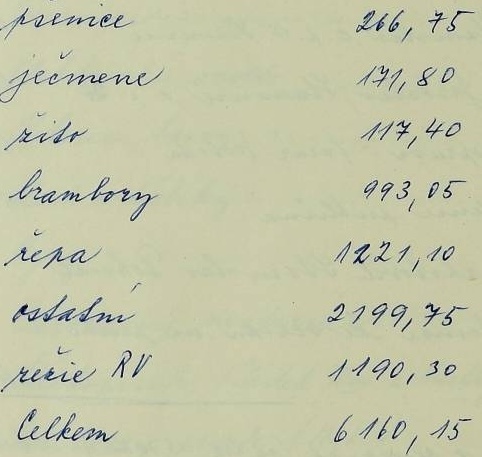 pšenice 266,75
ječmene 171,80
žito 117,40
brambory 993,05
řepa 1221,10
ostatní 2199,75
režie RV 1190,30
Celkem 6160,15